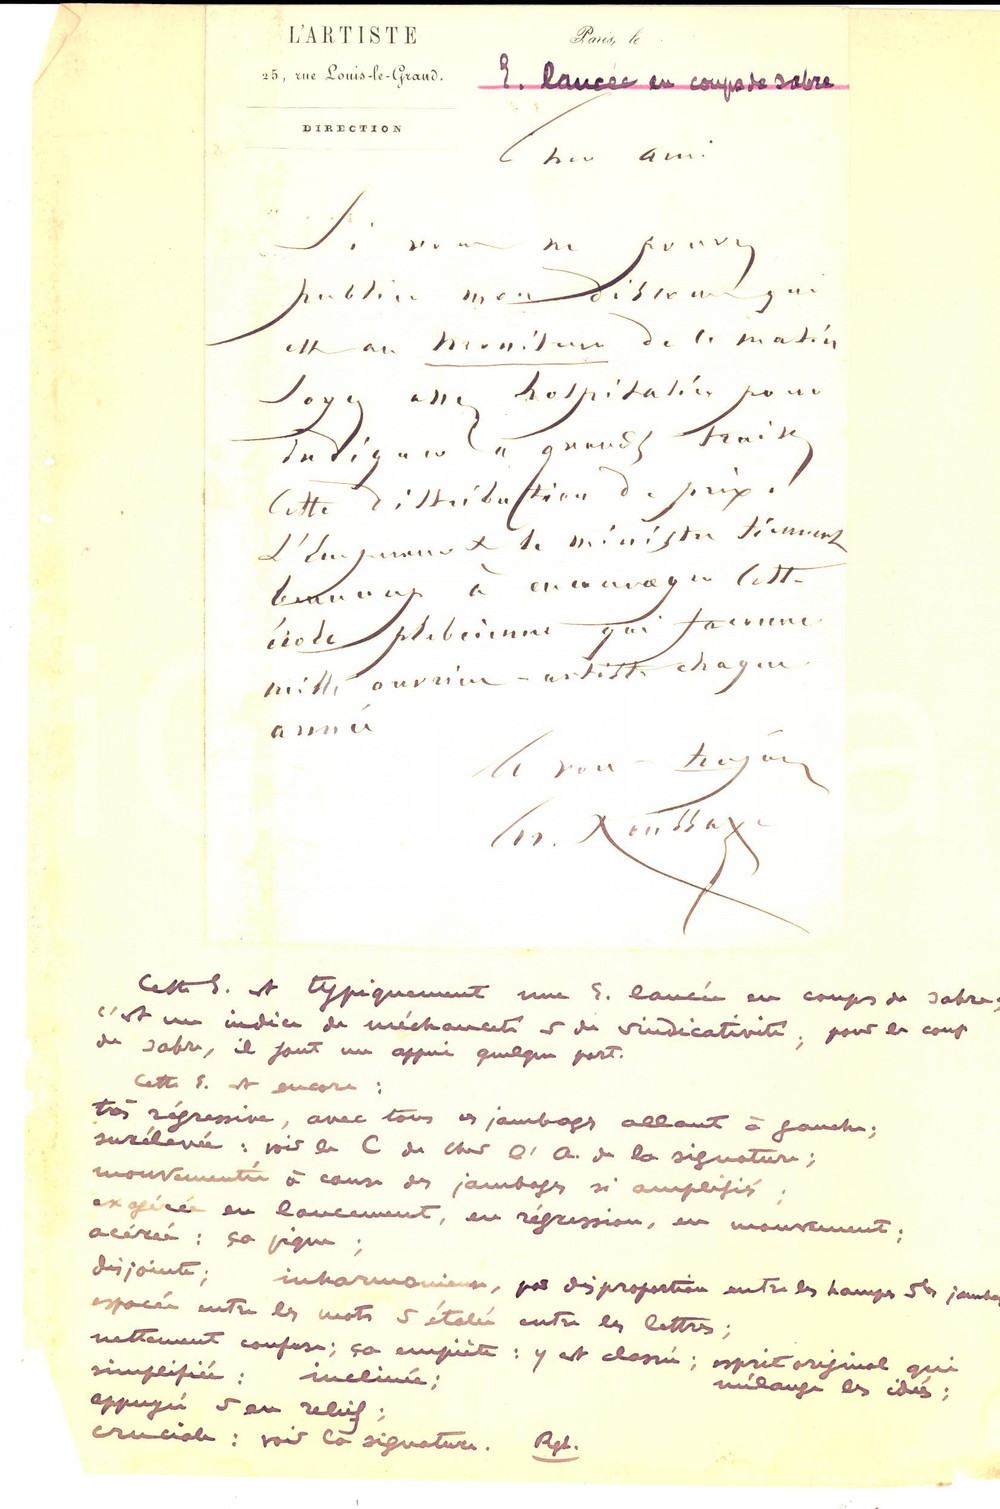 L'ARTISTE
Paris, le
25, rue Louis-le-Grand.
E. lancée en coups de sabre
DIRECTION
Cher ami
Si vous ne pouvez
publier mon discours qui
est au Moniteur de ce matin
Soyez assez hospitalier pour
indiquer à grands traits
Cette distribution de prix.
L'Empereur et le ministre tiennent
beaucoup à encourager cette
école plébéienne qui façonne
mille ouvriers-artistes chaque
année
A vous toujours
Ar. Houssaye
Cette E. est typiquement une E. lancée en coups de sabre;
c'est un indice de méchanceté & de vindicativité; pour le coup
de sabre, il faut un appui quelque part.
Cette E. est encore :
très régressive, avec tous ces jambages allant à gauche;
surélevée : voir le C de Cher & l'A. de la signature;
mouvementée à cause des jambages si amplifiés;
exagérée en lancement, en régression, en mouvement;
acérée : ça pique;
disjointe; inharmonieuse, par disproportion entre les hampes & les jambages
espacée entre les mots & étalée entre les lettres;
nettement confuse; ça empiète : y est classé; esprit original qui
simplifiée : inclinée; mélange les idées;
appuyée & en relief;
cruciale : voir la signature. Rgt.